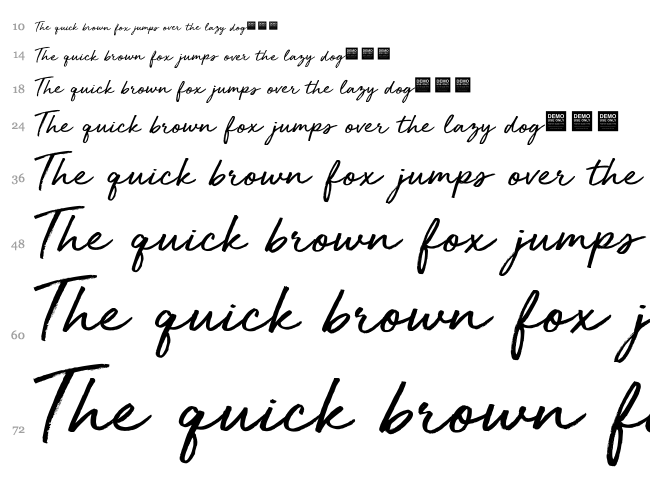 10 The quick brown fox jumps over the lazy dog
14 The quick brown fox jumps over the lazy dog DEMO DEMO DEMO
18 The quick brown fox jumps over the lazy dog DEMO DEMO DEMO
24 The quick brown fox jumps over the lazy dog DEMO USE ONLY DEMO USE ONLY DEMO USE ONLY
36 The quick brown fox jumps over the
48 The quick brown fox jumps
60 The quick brown fox j
72 The quick brown f